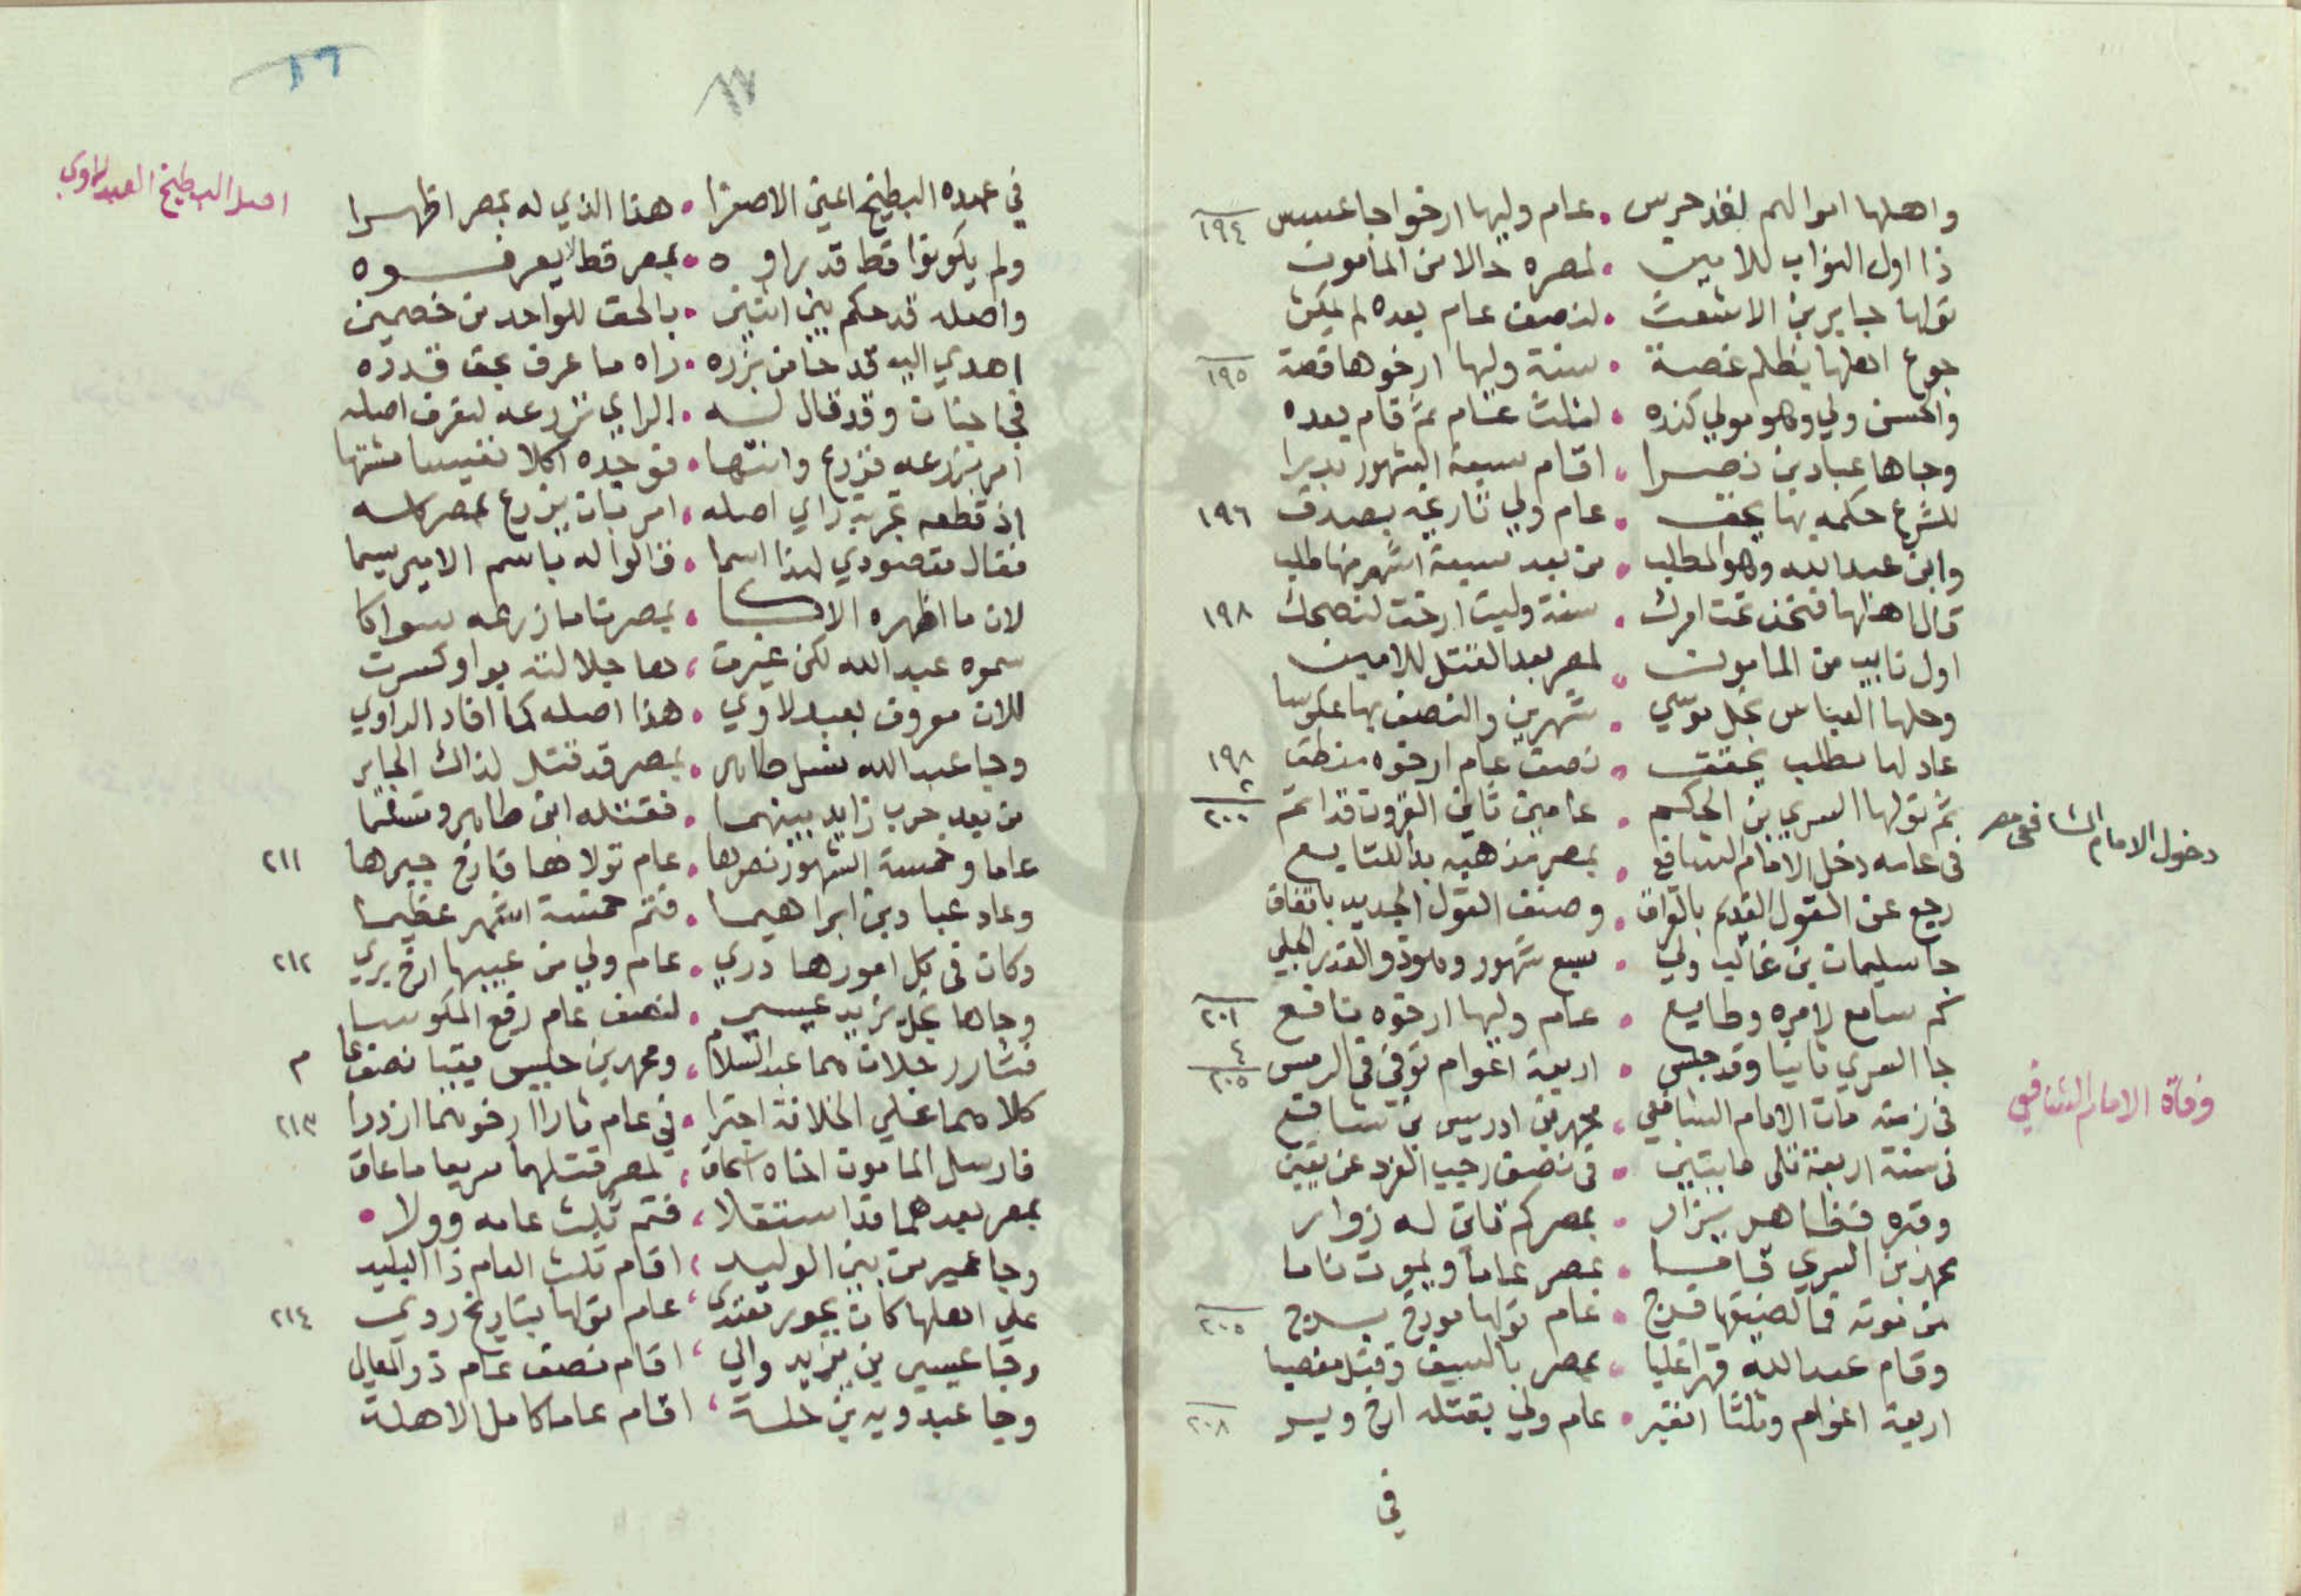 واهلها اموالهم لقد حرس • عام وليها ارخوا جا عبس ١٩٤
ذا اول النواب للامين • لمصره حالا من المامون
تولها جابر بن الاشعث • لنصف عام بعده لم يمكث
جوع اهلها بظلم غصة • سنة وليها ارخوها قصة ١٩٥
والحسن ولي وهو مولي كنده • لثلث عام ثم قام بعده
وجاها عباد بن نصرا • اقام سبعة الشهور بدرا
للشرع حكمه بها بحق • عام ولي تاريخه بصدق ١٩٦
وابن عبد الله وهو المطلب • من بعد سبعة اشهر منها طلب
قال اهلها فنحن تحت امرك • سنة وليت ارخت لنصحك ١٩٨
اول نايب من المامون • لمصر بعد القتل للامين
وحلها العباس نجل موسي • شهرين والنصف بها عكوسا
عاد لها مطلب بحقق • نصف عام ارخوه منطق ١٩٨
ثم تولها السري بن الحكم • عامين ثاني القرون قد اتم ٢ ٢٠٠
في عامه دخل الامام الشافع • بمصر مذهبه بدا للتابع
دخول الامام الشافعي مصر
رجع عن القول القديم بالوفاق • وصنف القول الجديد باتفاق
جا سليمان بن غالب ولي • سبع شهور وهو ذو القدر الجلي
كم سامع لامره وطايع • عام وليها ارخوه نافع ٢٠١
جا السري ثانيا وقد جلس • اربعة اعوام توفي في الرمس ٤ ٢٠٥
في زمنه مات الامام الشافعي • محمد بن ادريس بن شافع
وفاة الامام الشافعي
في سنة اربعة تلى مايتين • في نصف رجب الفرد عن يقين
وقبره فظاهر يزار • بمصر كم فاق له زوار
محمد بن السري قاما • بمصر عاما وبموت ناما
من موته فما لضيقها فرج • عام تولها مورخ بسرج ٢٠٥
وقام عبد الله قهرا غلبا • بمصر بالسيف وقبل مغصبا
اربعة اعوام وثلثا انفير • عام ولي بقتله ارخ ويسر ٢٠٨
في
١٦
١٧
في عهده البطيخ اعني الاصفرا • هذا الذي له بمصر اظهرا
اصل البطيخ العبدلاوي
ولم يكونوا قط قد براوه • بمصر قط لا يعرفوه
واصله قد حكم بين اثنين • بالحق للواحد من خصمين
اهدي اليه قدحا من بزره • راه ما عرف بحق قدره
فجا جنان وقد قال له • الراي نزرعه لنعرف اصله
امر بزرعه فزرع وانتها • فوجده اكلا نفيسا مشتها
اذ قطعه تجربة راي اصله • امر بان يزرع بمصر كله
فقال مقصودي لهذا اسما • قالوا له باسم الامير يسما
لان ما اظهره الاكا • بمصرنا ما زرعه سواكا
سموه عبد الله لكن غيرت • ها جلالته بواو كسرت
للان معروف بعبدلاوي • هذا اصله كما افاد الراوي
وجا عبد الله نسل طاهر • بمصر قد قتل لذاك الجاير
من بعد حرب زايد بينهما • فقتله ابن طاهر وتسلما
عاما وخمسة الشهور نصرها • عام تولاها فارخ جيرها ٢١١
وعاد عباد بن ابراهيما • فتم خمسة اشهر عظيما
وكان في كل امورها دري • عام ولي من عيبها ارخ بري ٢١٢
وجاها نجل يزيد عيسي • لنصف عام رفع المكوسا
فثار رجلان هما عبد السلام • ومحمد بن حلبس بقيا نصف عام
كلاهما علي الخلافة اجترا • في عام ثارا ارخوهما ازدرا ٢١٣
فارسل المامون اخاه اسحاق • لمصر قتلهما سريعا ما عاق
بمصر بعدهما قد استقلا • فتم ثلث عامه وولا •
وجا عمير من بني الوليد • اقام ثلث العام ذا البليد
علي اهلها كان بجور تعتدي • عام تولها بتاريخ ردي ٢١٤
وجا عيسي بن يزيد والي • اقام نصف عام ذو المعالي
وجا عبدويه بن جبلة • اقام عاما كامل الاهلة